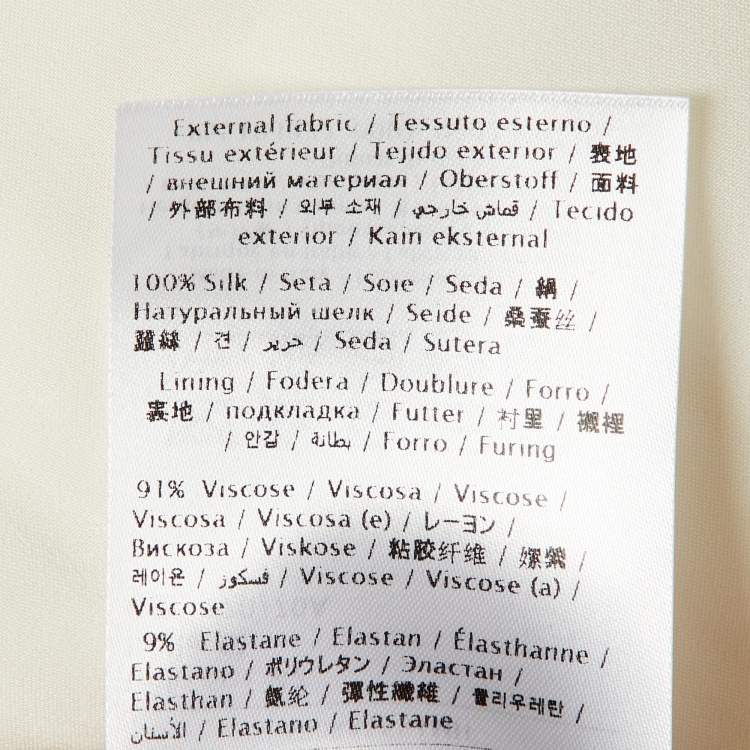 External fabric / Tessuto esterno /
Tissu extérieur / Tejido exterior / 表地
/ внешний материал / Oberstoff / 面料
/ 外部布料 / 외부 소재 / قماش خارجي / Tecido
exterior / Kain eksternal
100% Silk / Seta / Soie / Seda / 絹 /
Натуральный шелк / Seide / 桑蚕丝 /
蠶絲 / 견 / حرير / Seda / Sutera
Lining / Fodera / Doublure / Forro /
裏地 / подкладка / Futter / 村里 / 襯裡
/ 안감 / بطانة / Forro / Furing
91% Viscose / Viscosa / Viscose /
Viscosa / Viscosa (e) / レーヨン /
Вискоза / Viskose / 粘胶纤维 / 嫘縈 /
레이온 / فسكوز / Viscose / Viscose (a) /
Viscose
9% Elastane / Elastan / Élasthanne /
Elastano / ポリウレタン / Эластан /
Elasthan / 氨纶 / 彈性纖維 / 폴리우레탄 /
الأستان / Elastano / Elastane